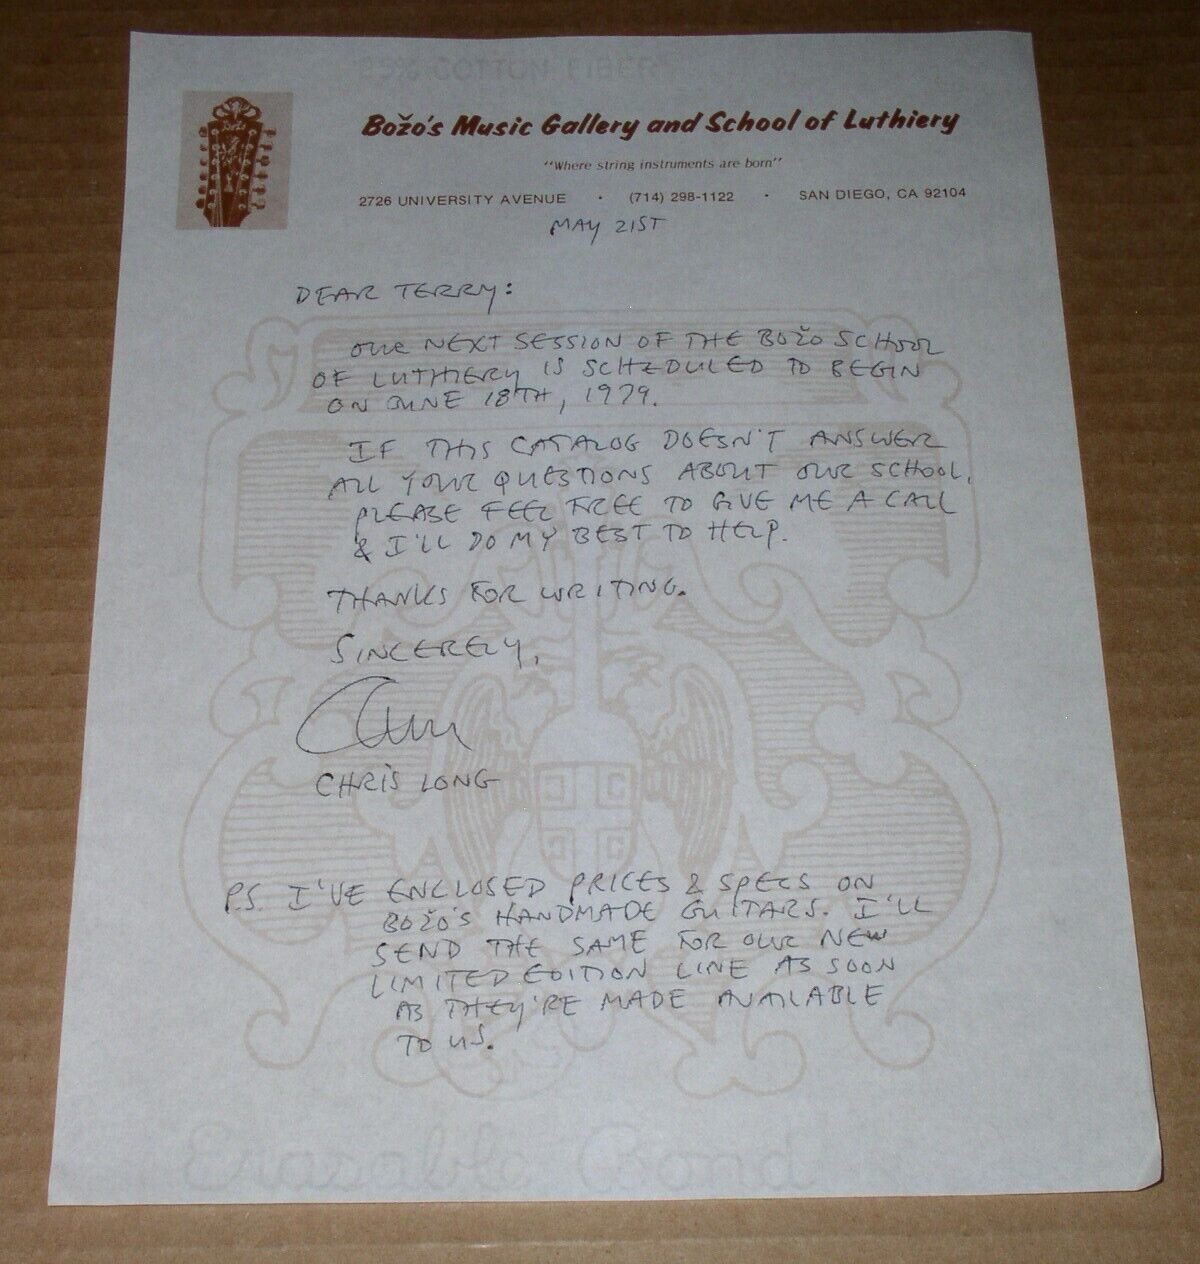 25% COTTON FIBER
Božo's Music Gallery and School of Luthiery
"Where string instruments are born"
2726 UNIVERSITY AVENUE • (714) 298-1122 • SAN DIEGO, CA 92104
MAY 21ST
DEAR TERRY:
OUR NEXT SESSION OF THE BOŽO SCHOOL
OF LUTHIERY IS SCHEDULED TO BEGIN
ON JUNE 18TH, 1979.
IF THIS CATALOG DOESN'T ANSWER
ALL YOUR QUESTIONS ABOUT OUR SCHOOL,
PLEASE FEEL FREE TO GIVE ME A CALL
& I'LL DO MY BEST TO HELP.
THANKS FOR WRITING.
SINCERELY,
Chris
CHRIS LONG
P.S. I'VE ENCLOSED PRICES & SPECS ON
BOŽO'S HANDMADE GUITARS. I'LL
SEND THE SAME FOR OUR NEW
LIMITED EDITION LINE AS SOON
AS THEY'RE MADE AVAILABLE
TO US.
Erasable Bond